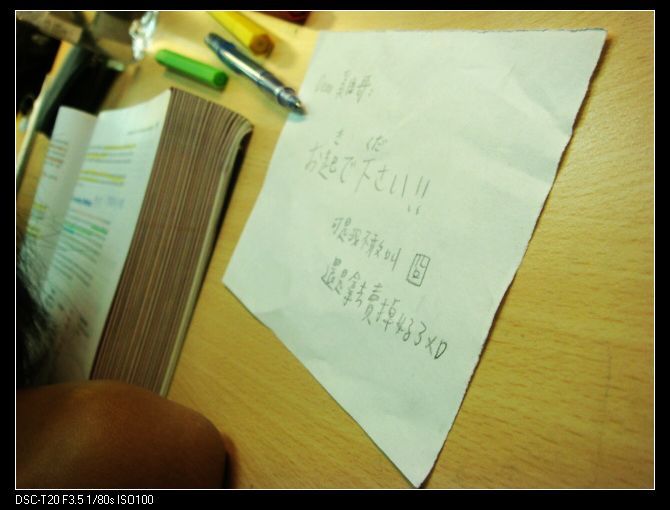 Dear
き くだ
お起で下さい!!
可是我不敢叫 囧
還是拿去賣掉433XD
DSC-T20 F3.5 1/80s ISO100